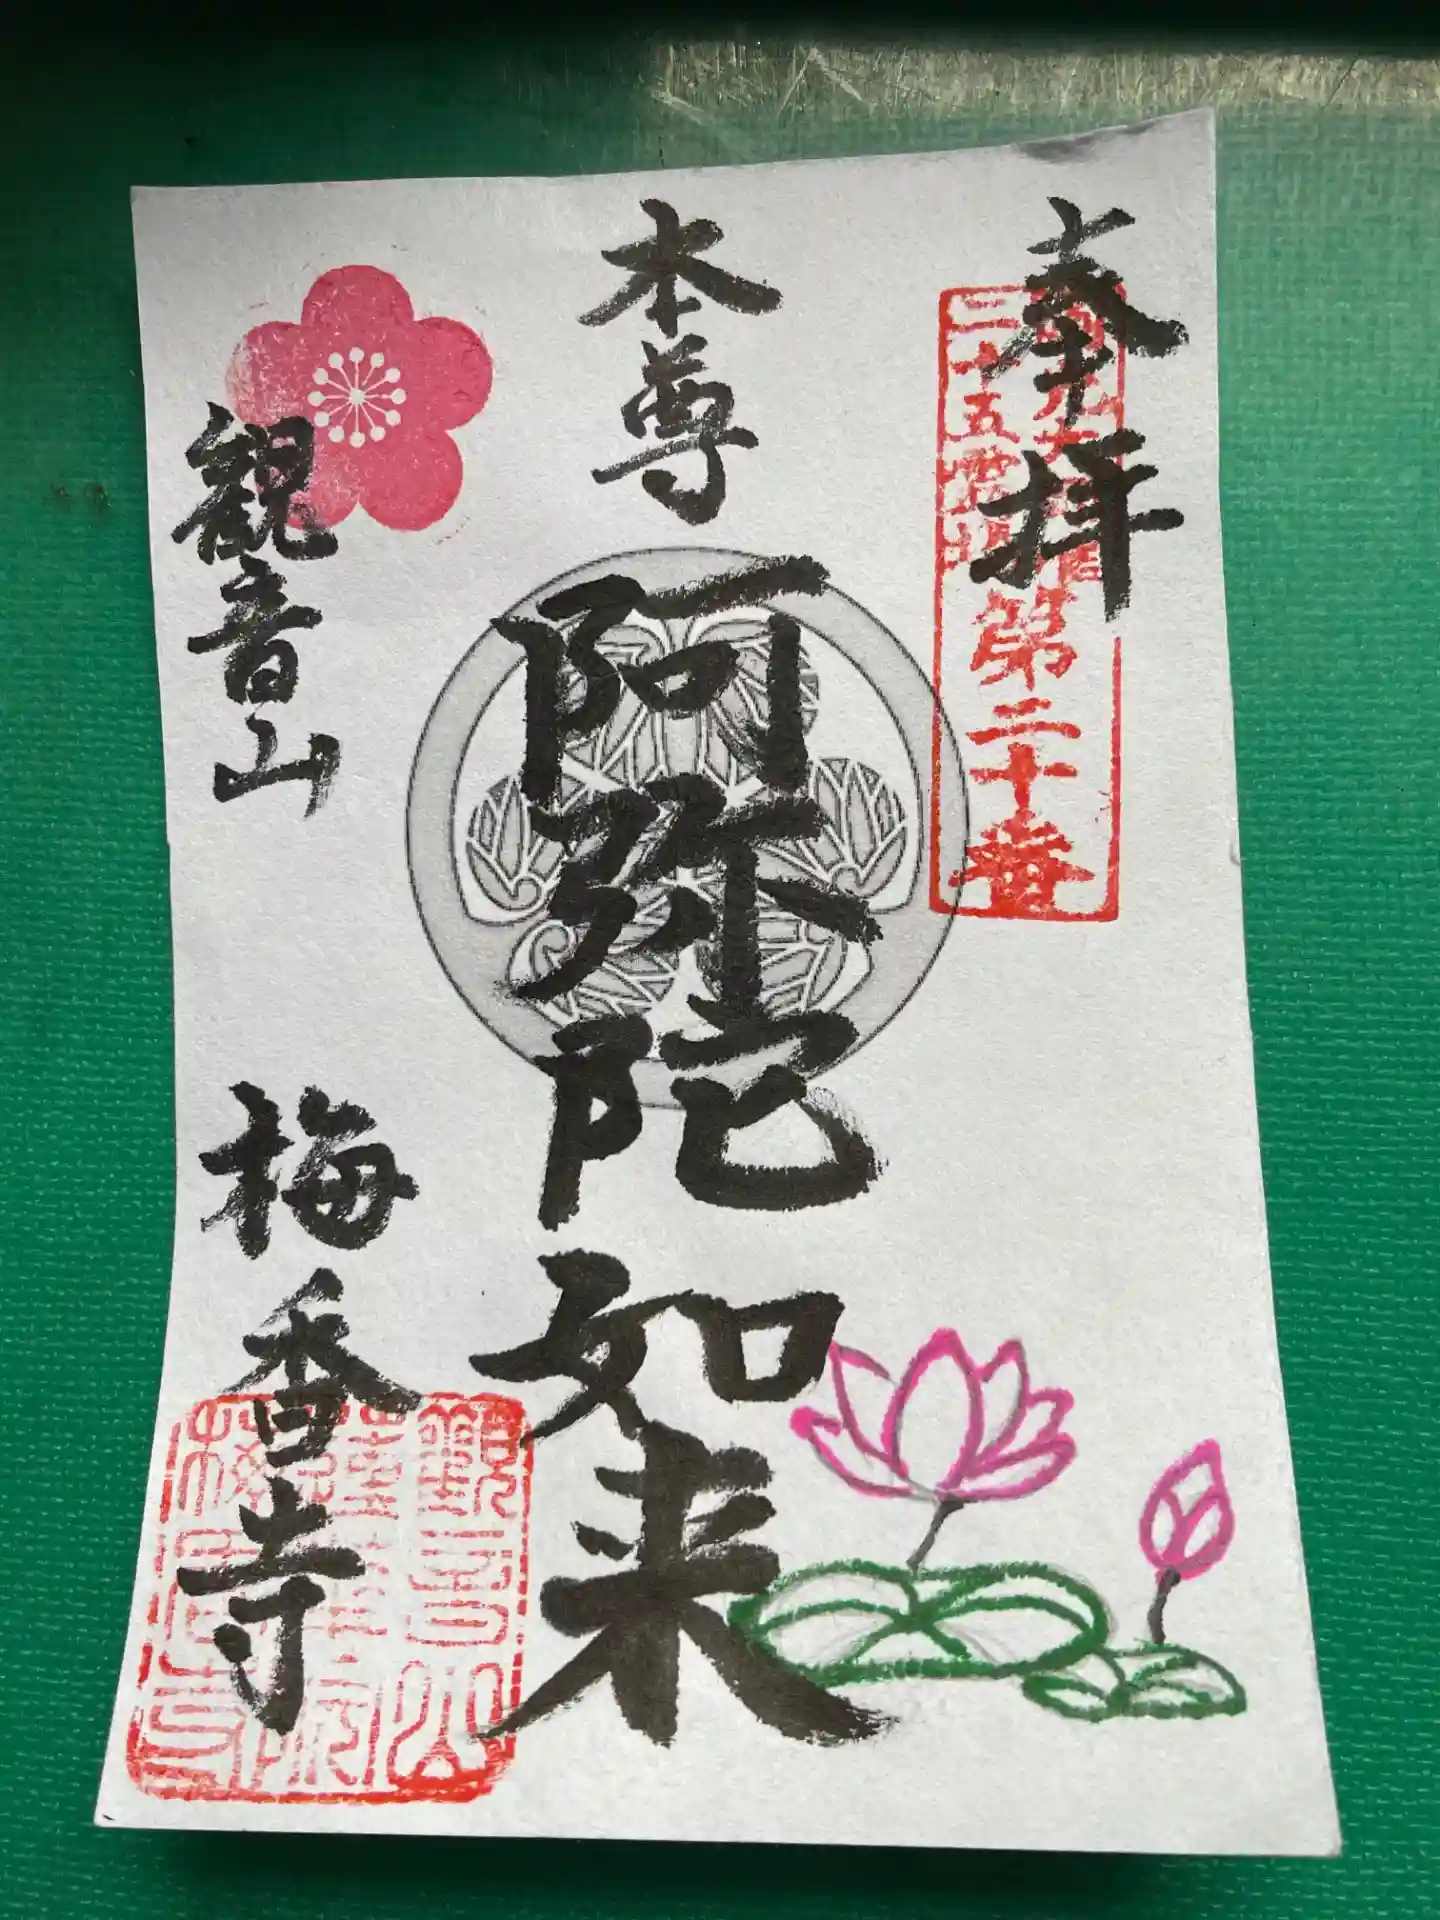 奉拝
二十五霊場
第二十番
本尊
阿弥陀如来
観音山
梅香寺